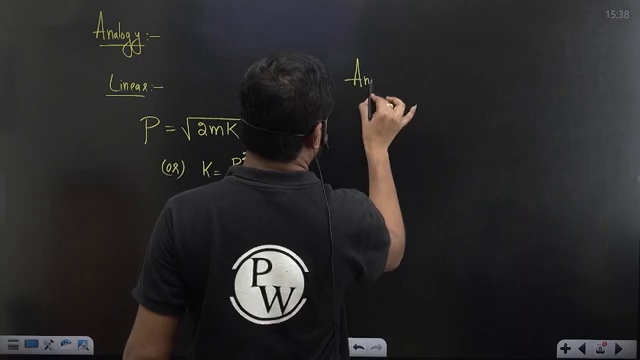 15:38
Analogy :-
Linear :-
An
P = √2mK
(or) K = P²
PW